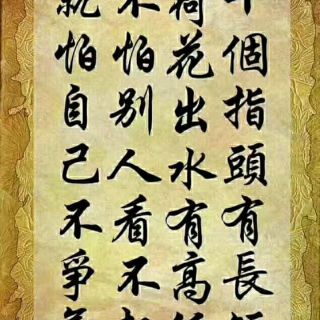 個指頭有長
荷花出水有高
不怕别人看不
就怕自己不爭